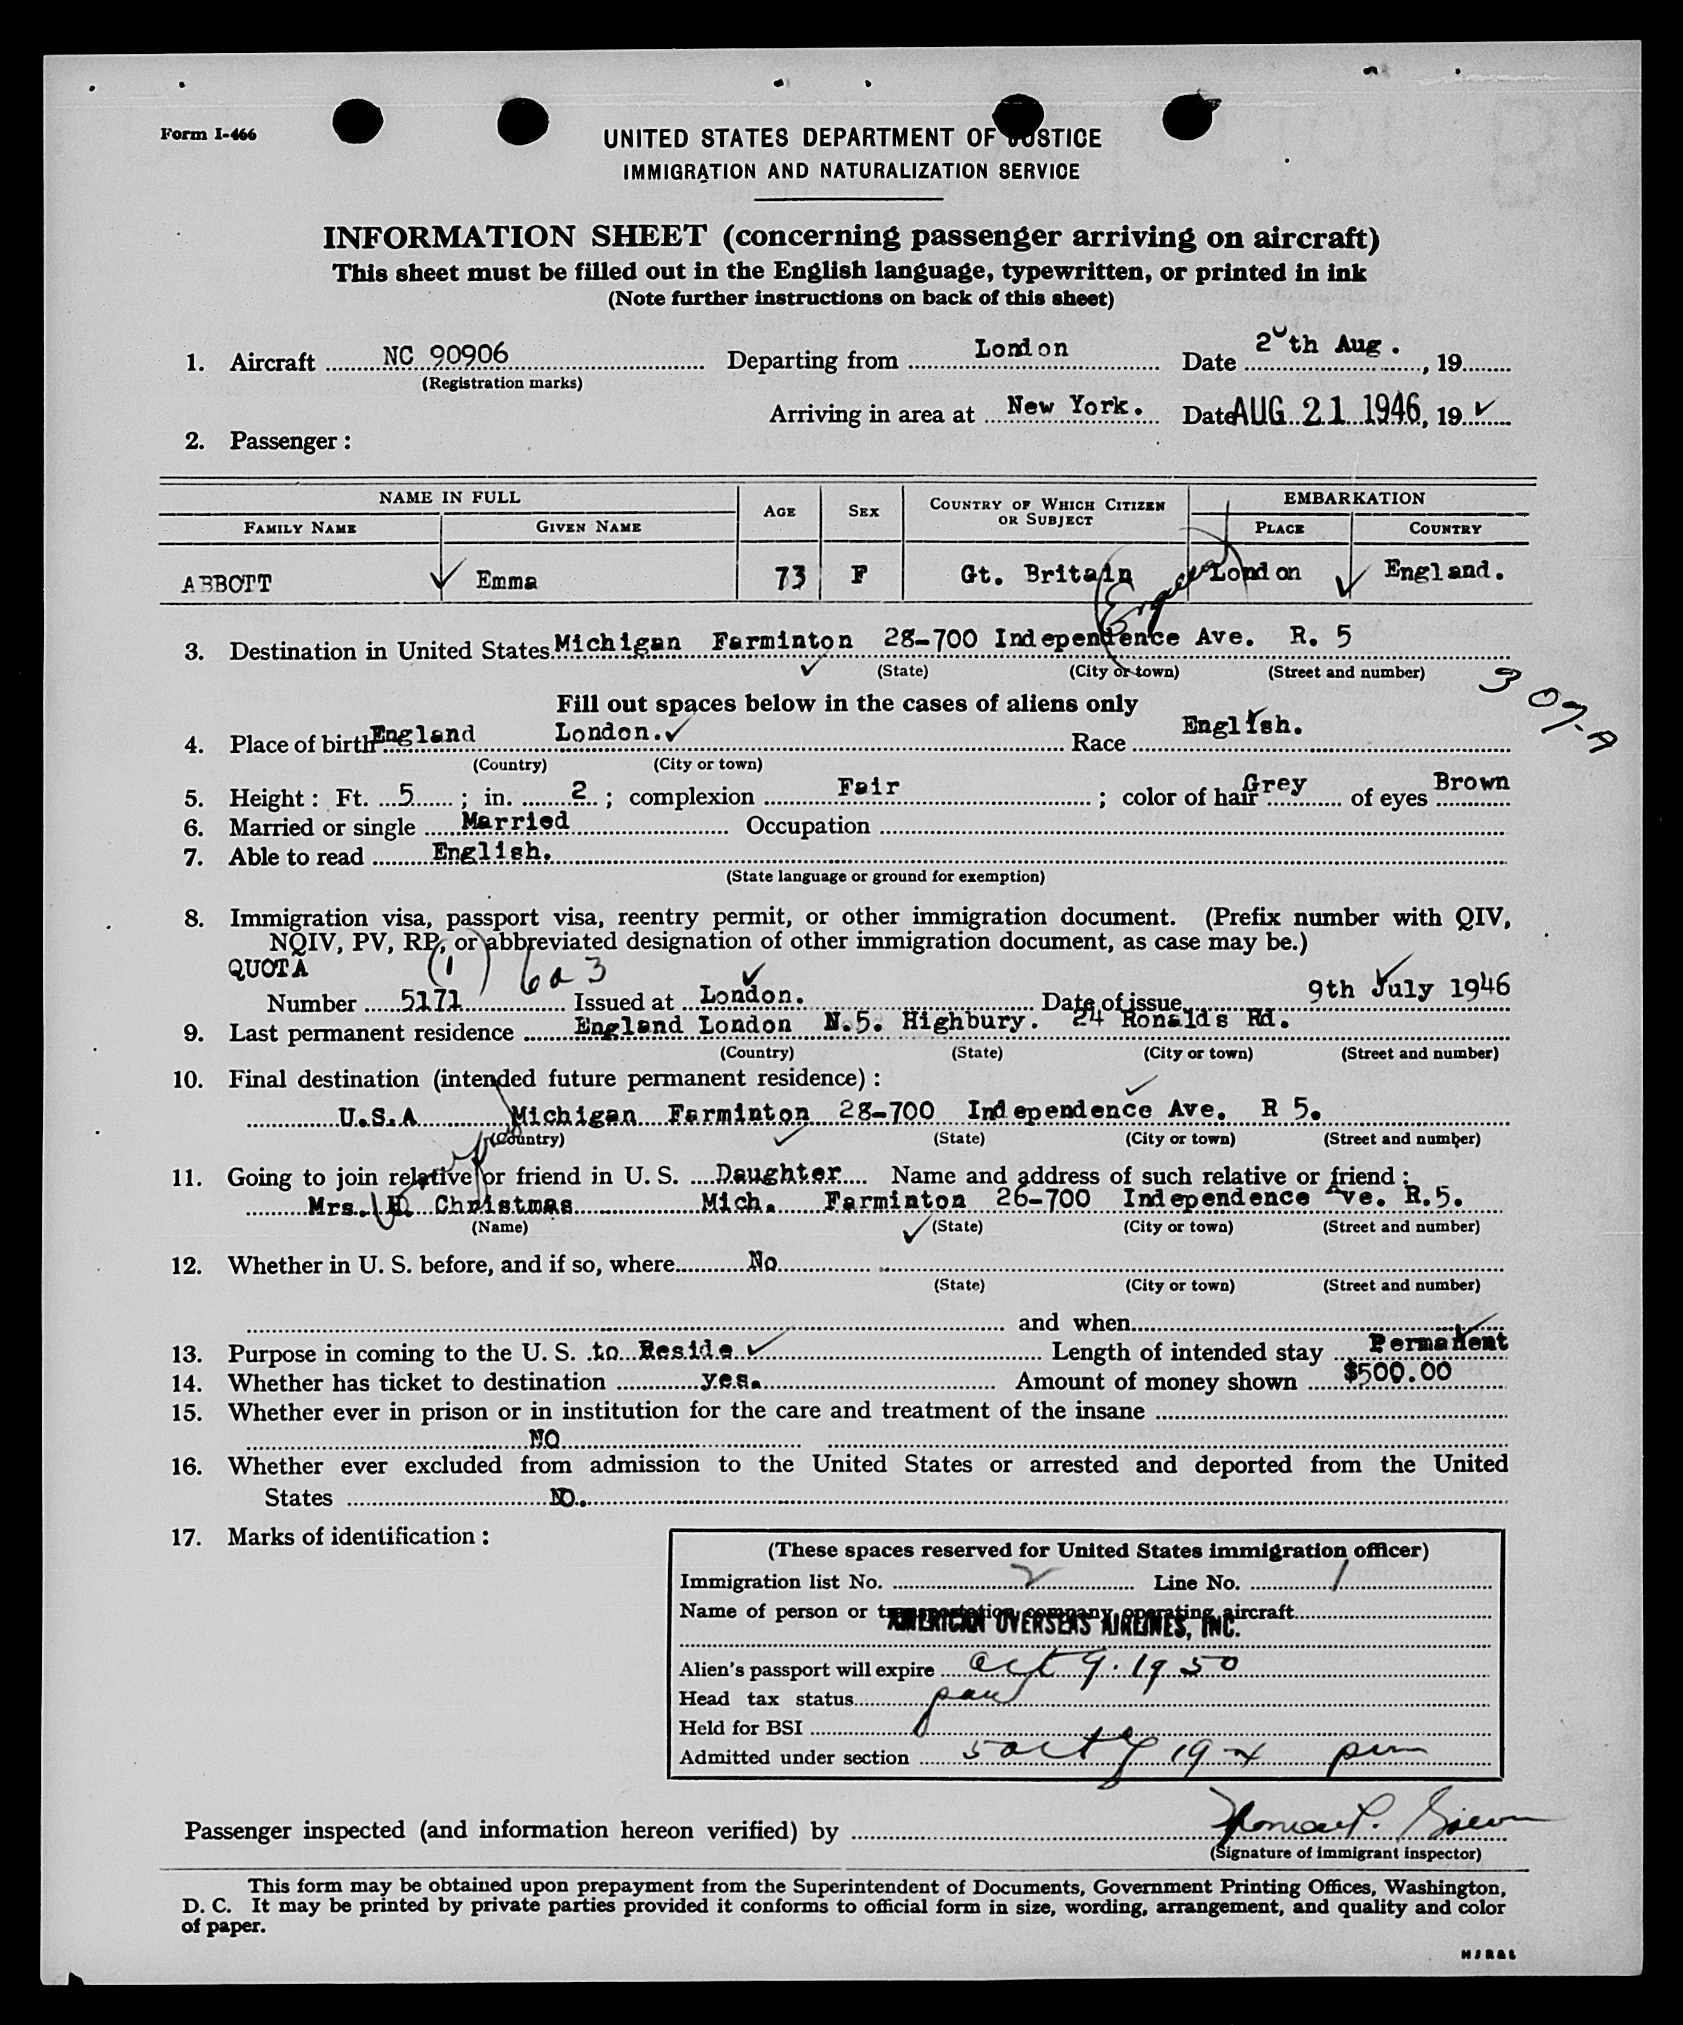 Form I-466
UNITED STATES DEPARTMENT OF JUSTICE
IMMIGRATION AND NATURALIZATION SERVICE
INFORMATION SHEET (concerning passenger arriving on aircraft)
This sheet must be filled out in the English language, typewritten, or printed in ink
(Note further instructions on back of this sheet)
1. Aircraft NC 90906 Departing from London Date 20th Aug. , 19
(Registration marks)
Arriving in area at New York. Date AUG 21 1946, 19
2. Passenger:
NAME IN FULL AGE SEX COUNTRY OF WHICH CITIZEN OR SUBJECT EMBARKATION
FAMILY NAME GIVEN NAME PLACE COUNTRY
ABBOTT Emma 73 F Gt. Britain London England.
3. Destination in United States Michigan Farminton 28-700 Independence Ave. R. 5
(State) (City or town) (Street and number)
307-A
Fill out spaces below in the cases of aliens only
4. Place of birth England London. Race English.
(Country) (City or town)
5. Height: Ft. 5 ; in. 2 ; complexion Fair ; color of hair Grey of eyes Brown
6. Married or single Married Occupation
7. Able to read English.
(State language or ground for exemption)
8. Immigration visa, passport visa, reentry permit, or other immigration document. (Prefix number with QIV,
NQIV, PV, RP, or abbreviated designation of other immigration document, as case may be.)
QUOTA (1) 6a3
Number 5171 Issued at London. Date of issue 9th July 1946
9. Last permanent residence England London N.5. Highbury. 24 Ronalds Rd.
(Country) (State) (City or town) (Street and number)
10. Final destination (intended future permanent residence):
U.S.A Michigan Farminton 28-700 Independence Ave. R 5.
(Country) (State) (City or town) (Street and number)
11. Going to join relative or friend in U. S. Daughter Name and address of such relative or friend:
Mrs. Christmas Mich. Farminton 26-700 Independence Ave. R.5.
(Name) (State) (City or town) (Street and number)
12. Whether in U. S. before, and if so, where No
(State) (City or town) (Street and number)
and when
13. Purpose in coming to the U. S. to Reside Length of intended stay Permanent
14. Whether has ticket to destination yes. Amount of money shown $500.00
15. Whether ever in prison or in institution for the care and treatment of the insane
NO
16. Whether ever excluded from admission to the United States or arrested and deported from the United
States NO.
17. Marks of identification:
(These spaces reserved for United States immigration officer)
Immigration list No. 2 Line No. 1
Name of person or transportation company operating aircraft
AMERICAN OVERSEAS AIRLINES, INC.
Alien's passport will expire Oct 9. 1950
Head tax status
Held for BSI
Admitted under section
Passenger inspected (and information hereon verified) by
(Signature of immigrant inspector)
This form may be obtained upon prepayment from the Superintendent of Documents, Government Printing Offices, Washington,
D. C. It may be printed by private parties provided it conforms to official form in size, wording, arrangement, and quality and color
of paper.